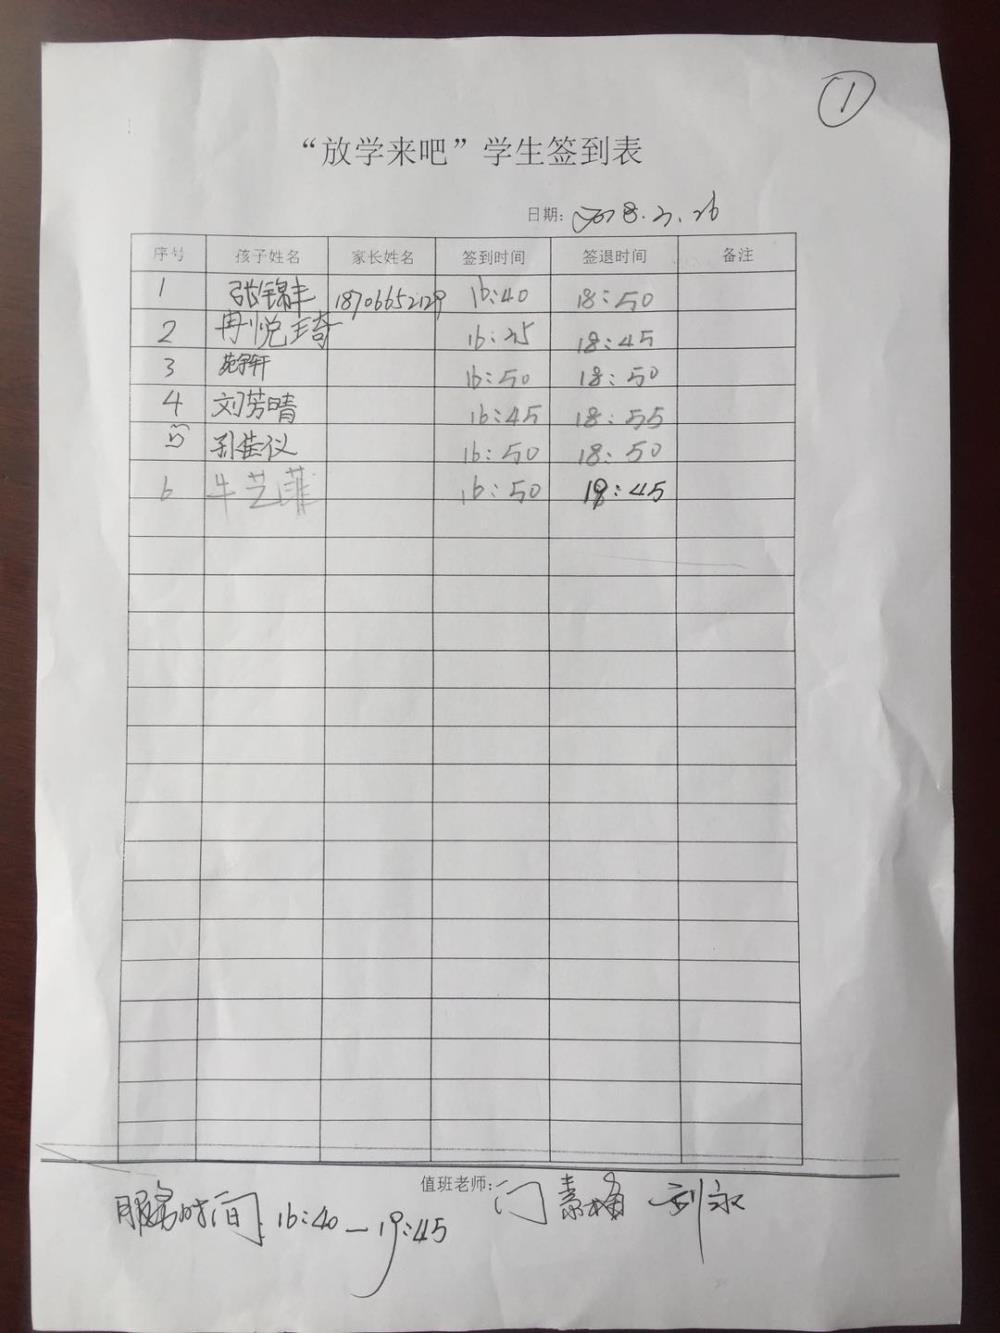 ①
“放学来吧”学生签到表
日期: 2018.3.26
序号 孩子姓名 家长姓名 签到时间 签退时间 备注
1 张锦丰 18706652129 16:40 18:50
2 冉悦琦 16:35 18:45
3 苑宇轩 16:50 18:50
4 刘芳晴 16:45 18:55
5 孙佳仪 16:50 18:50
6 牛艺菲 16:50 19:45
值班老师: 门素梅 刘永
服务时间 16:40—19:45